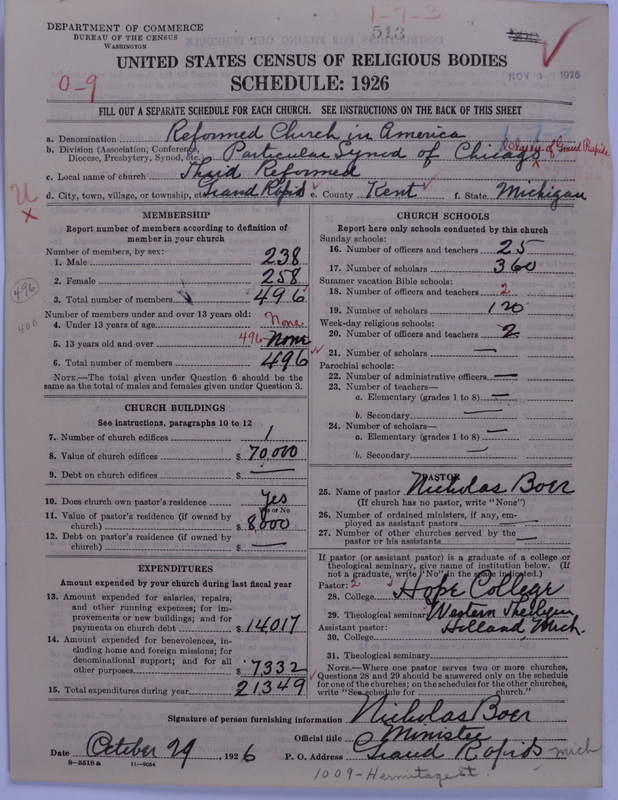 1-7-3
DEPARTMENT OF COMMERCE
BUREAU OF THE CENSUS
WASHINGTON
513
NOV 1 1926
UNITED STATES CENSUS OF RELIGIOUS BODIES
0-9
SCHEDULE: 1926
FILL OUT A SEPARATE SCHEDULE FOR EACH CHURCH. SEE INSTRUCTIONS ON THE BACK OF THIS SHEET
a. Denomination Reformed Church in America
b. Division (Association, Conference, Diocese, Presbytery, Synod, etc.) Particular Synod of Chicago Classis of Grand Rapids
c. Local name of church Third Reformed
d. City, town, village, or township, etc. Grand Rapids e. County Kent f. State Michigan
U
X
MEMBERSHIP
Report number of members according to definition of
member in your church
Number of members, by sex:
1. Male 238
2. Female 258
3. Total number of members 496
496
400
Number of members under and over 13 years old:
4. Under 13 years of age None
5. 13 years old and over 496 None
6. Total number of members 496
NOTE.—The total given under Question 6 should be the
same as the total of males and females given under Question 3.
CHURCH BUILDINGS
See instructions, paragraphs 10 to 12
7. Number of church edifices 1
8. Value of church edifices $ 70,000
9. Debt on church edifices $ —
10. Does church own pastor's residence yes
Yes or No
11. Value of pastor's residence (if owned by
church) $ 8,000
12. Debt on pastor's residence (if owned by
church) $ —
EXPENDITURES
Amount expended by your church during last fiscal year
13. Amount expended for salaries, repairs,
and other running expenses; for im-
provements or new buildings; and for
payments on church debt $ 14017
14. Amount expended for benevolences, in-
cluding home and foreign missions; for
denominational support; and for all
other purposes $ 7332
15. Total expenditures during year $ 21349
CHURCH SCHOOLS
Report here only schools conducted by this church
Sunday schools:
16. Number of officers and teachers 25
17. Number of scholars 360
Summer vacation Bible schools:
18. Number of officers and teachers 2
19. Number of scholars 120
Week-day religious schools:
20. Number of officers and teachers 2
21. Number of scholars —
Parochial schools:
22. Number of administrative officers —
23. Number of teachers—
a. Elementary (grades 1 to 8) —
b. Secondary —
24. Number of scholars—
a. Elementary (grades 1 to 8) —
b. Secondary —
PASTOR
25. Name of pastor Nicholas Boer
(If church has no pastor, write "None")
26. Number of ordained ministers, if any, em-
ployed as assistant pastors —
27. Number of other churches served by the
pastor or his assistants —
If pastor (or assistant pastor) is a graduate of a college or
theological seminary, give name of institution below. (If
not a graduate, write "No" in the space indicated.)
Pastor: 2
28. College Hope College
29. Theological seminary Western Theol Sem
Assistant pastor: Holland Mich.
30. College
31. Theological seminary
NOTE.—Where one pastor serves two or more churches,
Questions 28 and 29 should be answered only on the schedule
for one of the churches; on the schedules for the other churches,
write "See schedule for church."
Signature of person furnishing information Nicholas Boer
Official title Minister
Date October 29, 1926 P. O. Address Grand Rapids Mich
8-5518 a 11-9054
1009-Hermitage St.